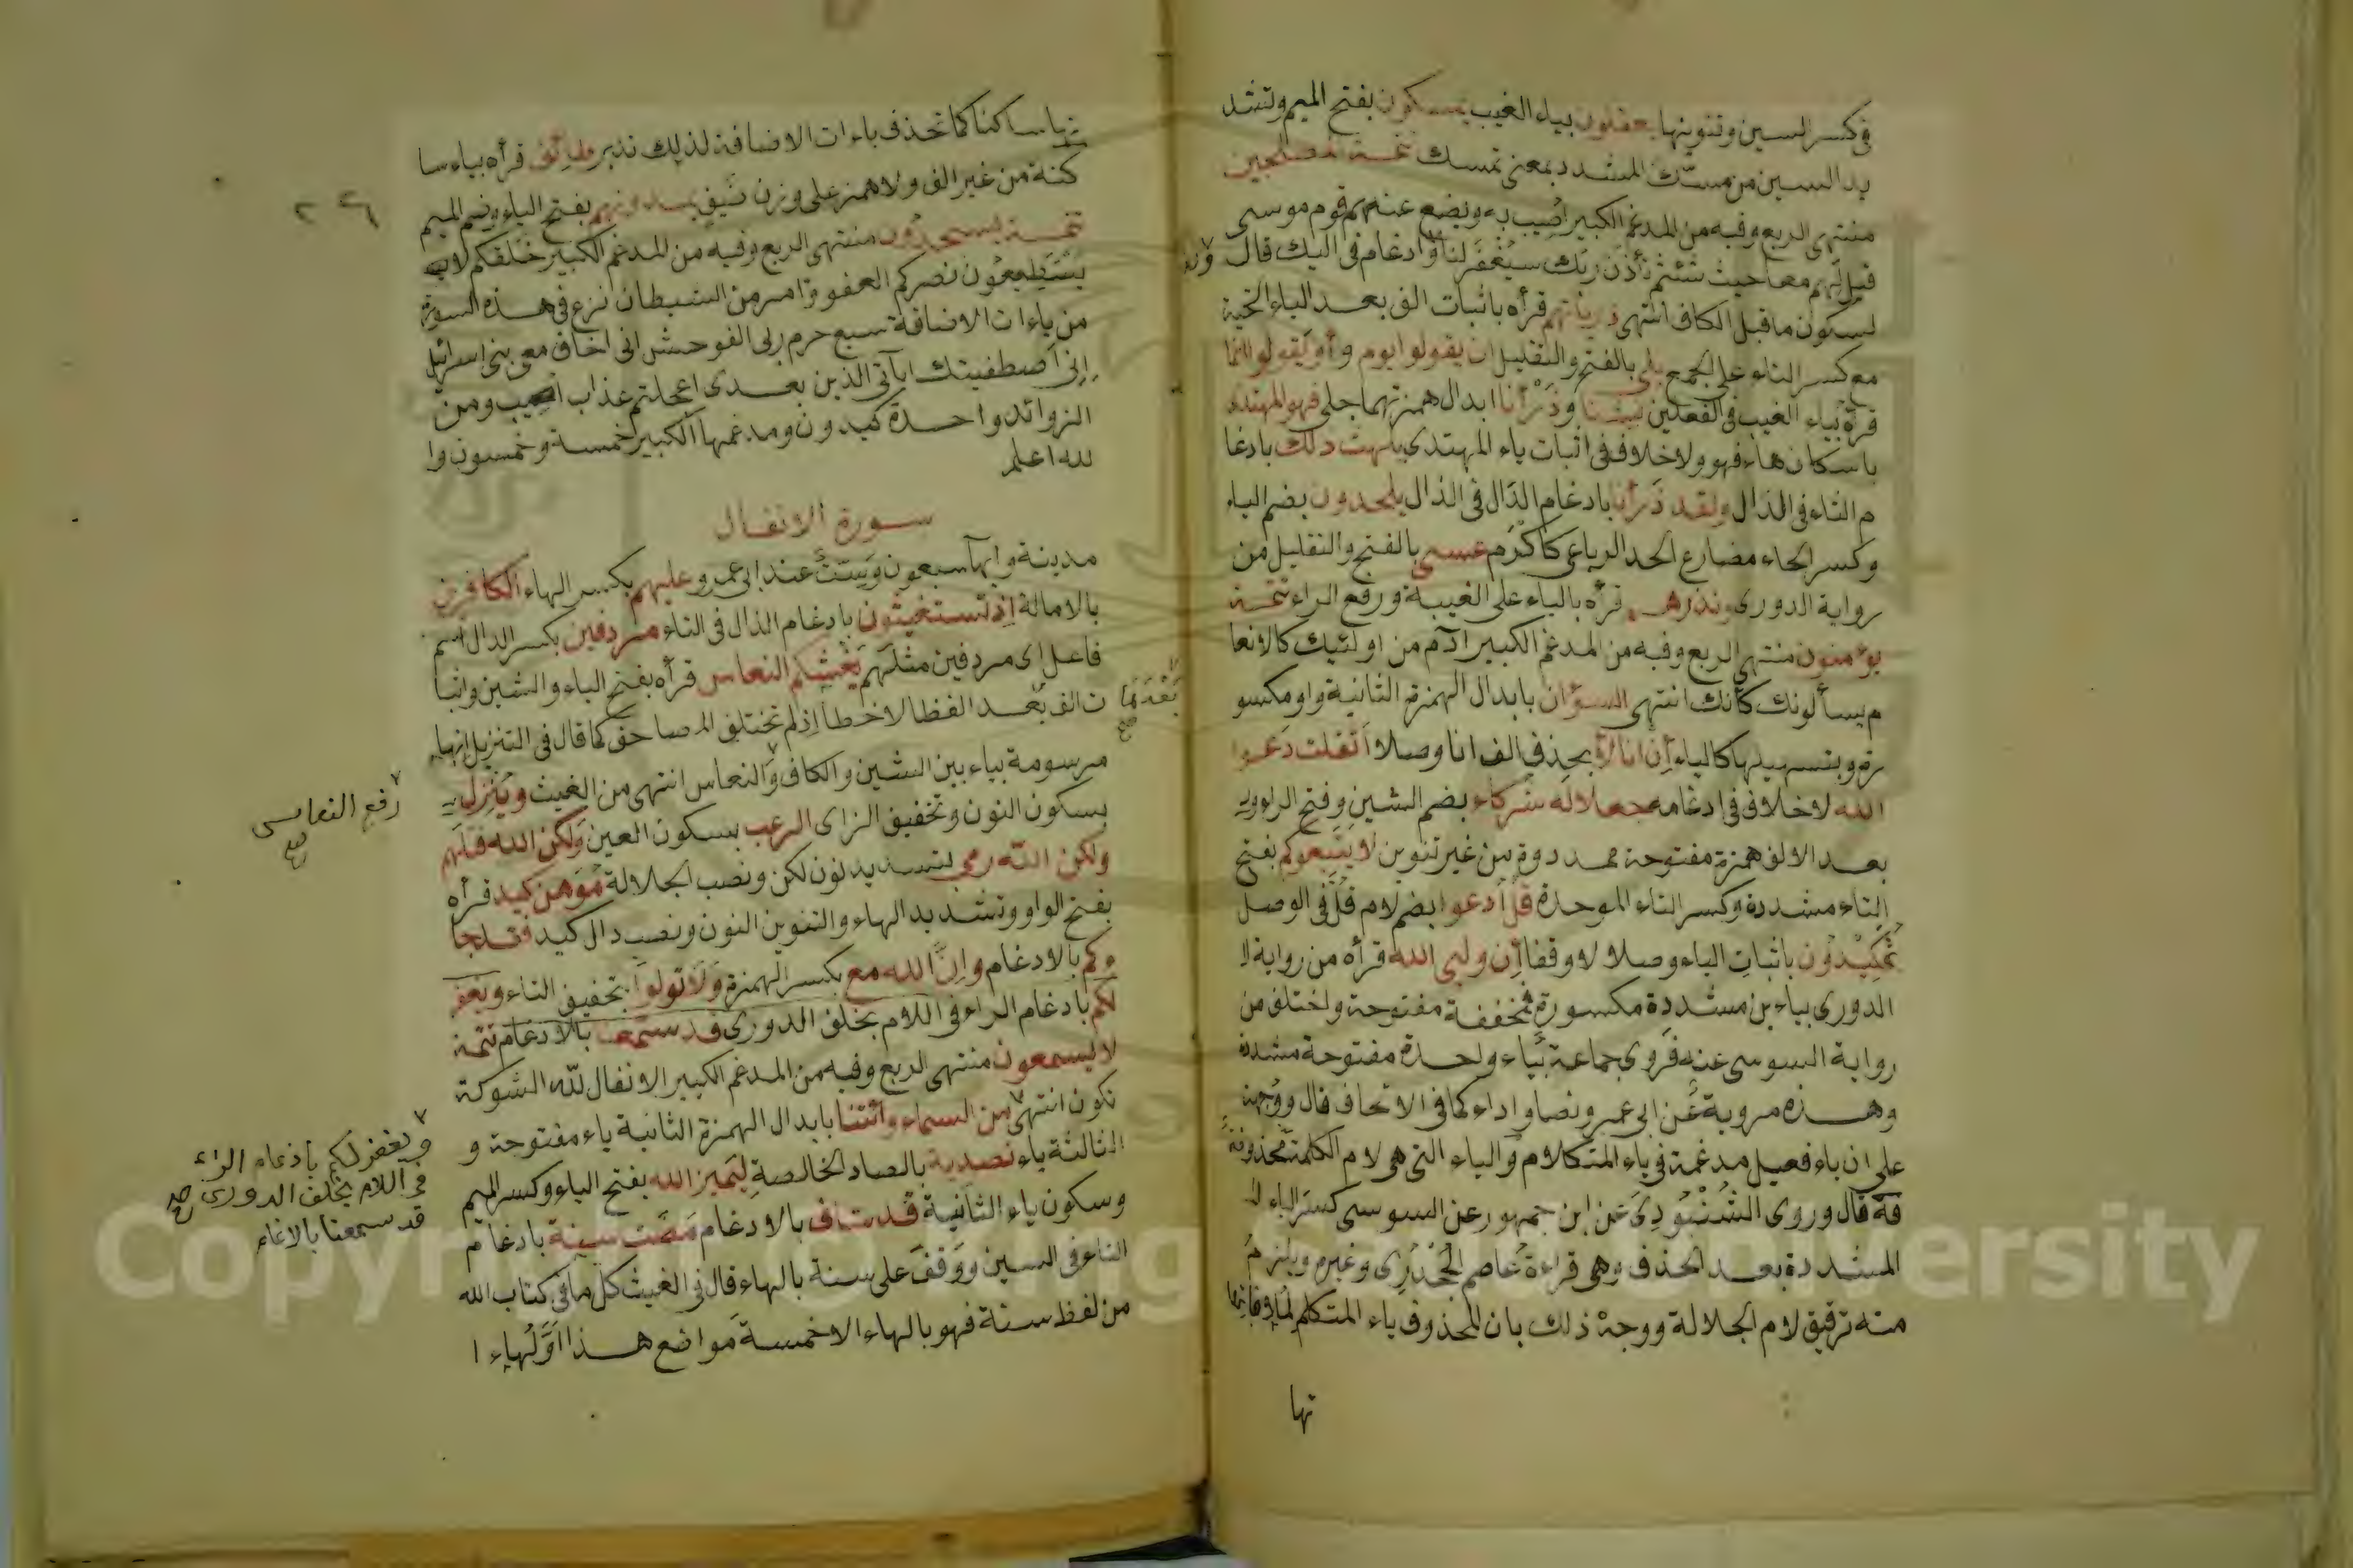 فى كسر السين وتنوينها يعقلون بياء الغيب يمسكون بفتح الميم وتشد
يد السين من مسّك المشدد بمعنى تمسك تتمة المصلحين
منتهى الربع وفيه من المدغم الكبير اصيب به ويضع عنهم قوم موسى
قيل لهم معا حيث شئتم تأذن ربك سيغفر لنا ولا ادغام فى اليك قال
لسكون ما قبل الكاف انتهى ذرياتهم قرأه باثبات الف بعد الياء التحتية
مع كسر التاء على الجمع بلى بالفتح والتقليل ان يقولوا يوم وأو يقولوا انما
قرأه بياء الغيب فى الفعلين شئنا وذرأنا ابدال همزتهما جلى فهو المهتد
باسكان هاء فهو ولا خلاف فى اثبات ياء المهتدي يلهث ذلك بادغا
م الثاء فى الذال ولقد ذرأنا بادغام الدال فى الذال يلحدون بضم الياء
وكسر الحاء مضارع الحد الرباعى كأكرم عسى بالفتح والتقليل من
رواية الدورى ونذرهم قرأه بالياء على الغيبة ورفع الراء تتمة
يؤمنون منتهى الربع وفيه من المدغم الكبير ادم من اولئيك كالانعا
م يسألونك كأنك انتهى السوان بابدال الهمزة الثانية واو مكسو
رة وبتسهيلها كالياء إن انا إلا بحذف الف انا وصلا اثقلت دعوا
الله لا خلاف فى ادغامه جعلا له شركاء بضم الشين وفتح الراء و
بعد الالف همزة مفتوحة ممدودة من غير تنوين لا يتبعوكم بفتح
التاء مشددة وكسر التاء الموحدة قل ادعوا بضم لام قل فى الوصل
ثم كيدون باثبات الياء وصلا لا وقفا إن وليي الله قرأه من رواية ا
الدورى بياءين مشددة مكسورة فمخففة مفتوحة واختلف من
رواية السوسى عنه فروى جماعة بياء واحدة مفتوحة مشددة
وهذه مروية عن ابى عمرو نصا واداء كما فى الاتحاف قال ووجهت
على ان ياء فعيل مدغمة فى ياء المتكلام والياء التى هى لام الكلمة محذو
فة قال وروى الشنبوذى عن ابن جمهور عن السوسى كسر الياء
المشددة بعد الحذف وهى قراءة عاصم الجحدرى وغيره ويلزم
منه ترقيق لام الجلالة ووجه ذلك بان المحذوف ياء المتكلم لملاقاتها
تها
ساكنا كما تحذف ياءات الاضافة لذلك تدبر طائف قرأه بياء سا
كنة من غير الف ولا همز على وزن ضيف يمدونهم بفتح الياء وضم الميم
تتمة يسجدون منتهى الربع وفيه من المدغم الكبير خلقكم لا
يستطيعون نصركم العفو وامر من الشيطان نزغ فى هذه السورة
من ياءات الاضافة سبع حرم ربى الفوحش انى اخاف معى بنى اسرائيل
إنى اصطفيتك اياتى الذين بعدى اعجلتم عذاب اصيب ومن
الزوائد واحدة كيدون ومدغمها الكبير خمسة وخمسون وا
لله اعلم
سورة الانفال
مدينة وايها سبعون وست عند ابى عمرو وعليهم بكسر الهاء الكافرين
بالامالة اذ تستغيثون بادغام الذال فى التاء مردفين بكسر الدال اسم
فاعل اى مردفين مثلهم يغشيكم النعاس قرأه بفتح الياء والشين واثبا
ت الف بعد الفظا لا خطا اذ لم تختلف المصاحف كما قال فى التنزيل انها
بعدها صح
مرسومة بياء بين الشين والكاف والنعاس انتهى من الغيث وينزل
رفع النعاس صح
بسكون النون وتخفيف الزاى الرعب بسكون العين ولكن الله قتلهم
ولكن الله رمى بتشديد نون لكن ونصب الجلالة موهن كيد قرأه
بفتح الواو وتشديد الهاء والتنوين النون ونصب دال كيد فقد جا
ءكم بالادغام وان الله مع بكسر الهمزة ولا تولوا بتخفيف التاء ويغفر
لكم بادغام الراء فى اللام بخلف الدورى قد سمعنا بالادغام تتمة
لا يسمعون منتهى الربع وفيه من المدغم الكبير الانفال لله الشوكة
تكون انتهى من السماء وائتنا بابدال الهمزة الثانية ياء مفتوحة و
الثالثة ياء تصدية بالصاد الخالصة ليميز الله بفتح الياء وكسر الميم
وسكون ياء الثانية قد سلف بالادغام مضت سنة بادغام
التاء فى السين ووقف على سنة بالهاء قال فى الغيث كل ما فى كتاب الله
من لفظ سنة فهو بالهاء الا خمسة مواضع هذا اولها ء ا
ويغفر لكم بادغام الراء
فى اللام بخلف الدورى صح
قد سمعنا بالادغام
Copyright © King Saud University